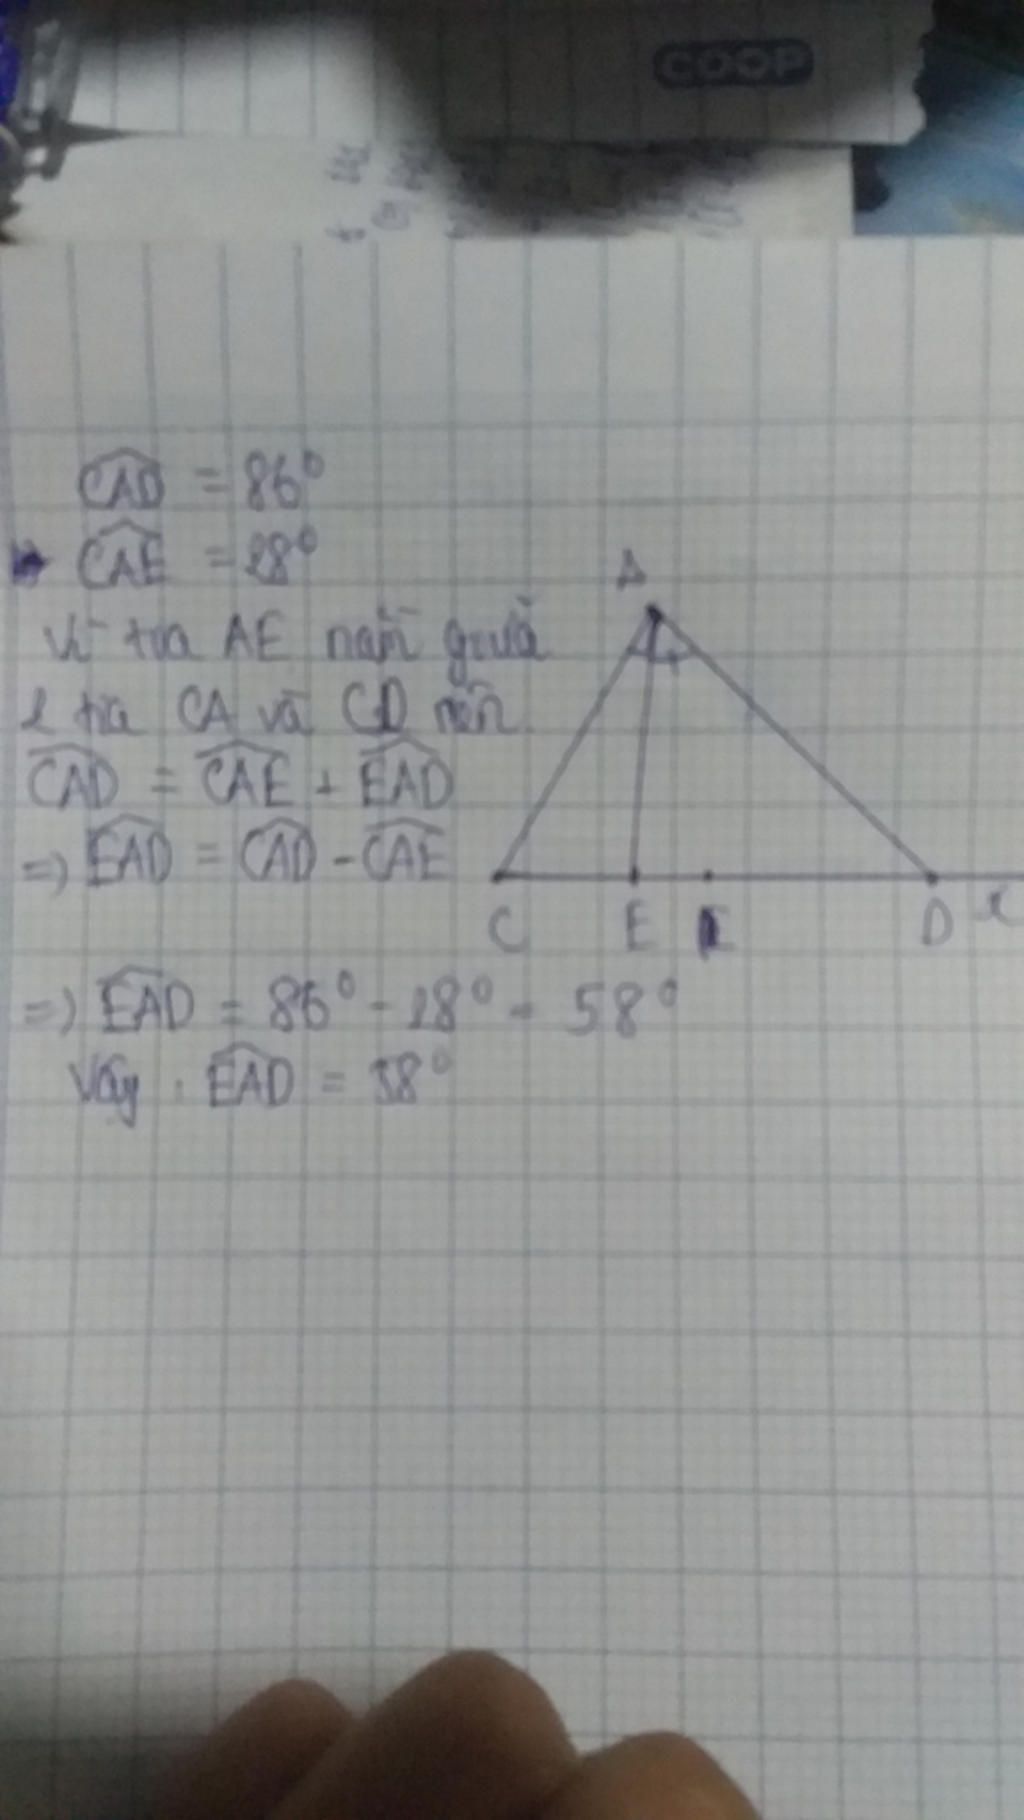 COOP
CAD = 86°
CAE = 28°
Vì tia AE nằm giữa
2 tia CA và CD nên
CAD = CAE + EAD
=> EAD = CAD - CAE
=> EAD = 86° - 28° = 58°
Vậy : EAD = 58°
A
C E I D x